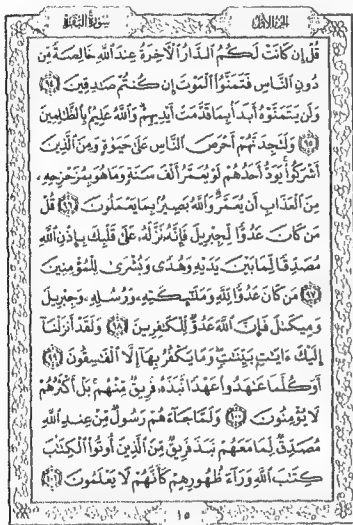 الجزء الأول سورة البقرة
قُلْ إِن كَانَتْ لَكُمُ الدَّارُ الْآخِرَةُ عِندَ اللَّهِ خَالِصَةً مِّن
دُونِ النَّاسِ فَتَمَنَّوُا الْمَوْتَ إِن كُنتُمْ صَادِقِينَ ﴿٩٤﴾
وَلَن يَتَمَنَّوْهُ أَبَدًا بِمَا قَدَّمَتْ أَيْدِيهِمْ وَاللَّهُ عَلِيمٌ بِالظَّالِمِينَ
﴿٩٥﴾ وَلَتَجِدَنَّهُمْ أَحْرَصَ النَّاسِ عَلَىٰ حَيَوٰةٍ وَمِنَ الَّذِينَ
أَشْرَكُوا يَوَدُّ أَحَدُهُمْ لَوْ يُعَمَّرُ أَلْفَ سَنَةٍ وَمَا هُوَ بِمُزَحْزِحِهِ
مِنَ الْعَذَابِ أَن يُعَمَّرَ وَاللَّهُ بَصِيرٌ بِمَا يَعْمَلُونَ ﴿٩٦﴾ قُلْ
مَن كَانَ عَدُوًّا لِّجِبْرِيلَ فَإِنَّهُ نَزَّلَهُ عَلَىٰ قَلْبِكَ بِإِذْنِ اللَّهِ
مُصَدِّقًا لِّمَا بَيْنَ يَدَيْهِ وَهُدًى وَبُشْرَىٰ لِلْمُؤْمِنِينَ
﴿٩٧﴾ مَن كَانَ عَدُوًّا لِّلَّهِ وَمَلَٰئِكَتِهِ وَرُسُلِهِ وَجِبْرِيلَ
وَمِيكَىٰلَ فَإِنَّ اللَّهَ عَدُوٌّ لِّلْكَافِرِينَ ﴿٩٨﴾ وَلَقَدْ أَنزَلْنَا
إِلَيْكَ ءَايَٰتٍ بَيِّنَٰتٍ وَمَا يَكْفُرُ بِهَا إِلَّا الْفَاسِقُونَ ﴿٩٩﴾
أَوَكُلَّمَا عَٰهَدُوا عَهْدًا نَّبَذَهُ فَرِيقٌ مِّنْهُم بَلْ أَكْثَرُهُمْ
لَا يُؤْمِنُونَ ﴿١٠٠﴾ وَلَمَّا جَاءَهُمْ رَسُولٌ مِّنْ عِندِ اللَّهِ
مُصَدِّقٌ لِّمَا مَعَهُمْ نَبَذَ فَرِيقٌ مِّنَ الَّذِينَ أُوتُوا الْكِتَٰبَ
كِتَٰبَ اللَّهِ وَرَاءَ ظُهُورِهِمْ كَأَنَّهُمْ لَا يَعْلَمُونَ ﴿١٠١﴾
١٥